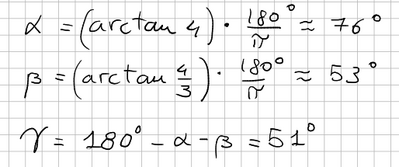 α = (arctan 4) · 180°/π ≈ 76°
β = (arctan 4/3) · 180°/π ≈ 53°
γ = 180° - α - β = 51°